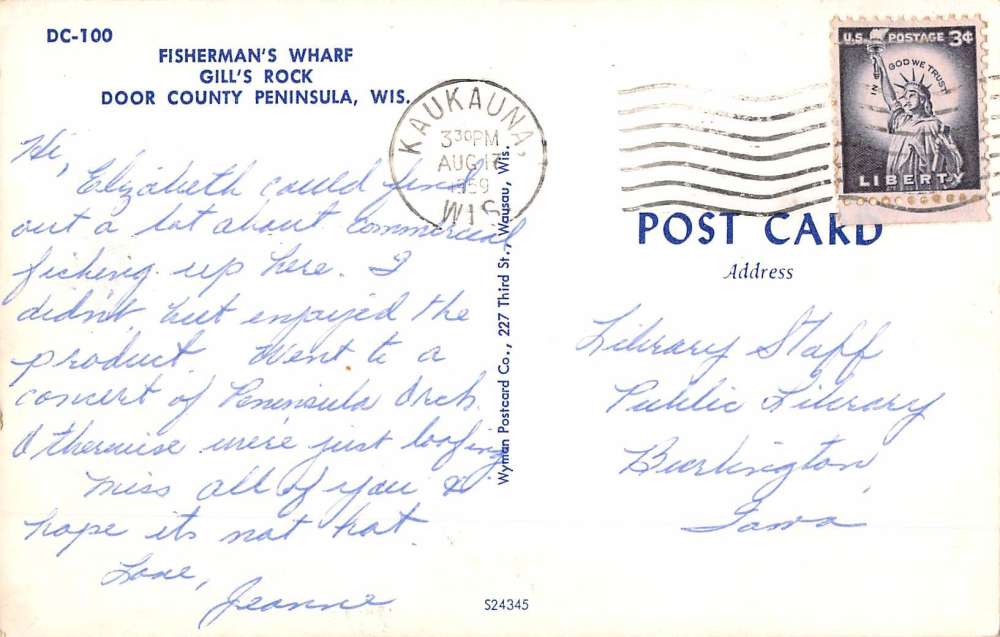 DC-100
FISHERMAN'S WHARF
GILL'S ROCK
DOOR COUNTY PENINSULA, WIS.
Hi,
Elizabeth could find
out a lot about commercial
fishing up here. I
didn't, but enjoyed the
product. Went to a
concert of Peninsula Orch.
Otherwise we're just loafing
Miss all of you &
hope it's not hot.
Love,
Jeanne
KAUKAUNA,
3 30 PM
AUG 17
1959
WIS
Wyman Postcard Co., 227 Third St., Wausau, Wis.
U.S. POSTAGE 3¢
IN GOD WE TRUST
LIBERTY
POST CARD
Address
Library Staff
Public Library
Burlington,
Iowa
S24345